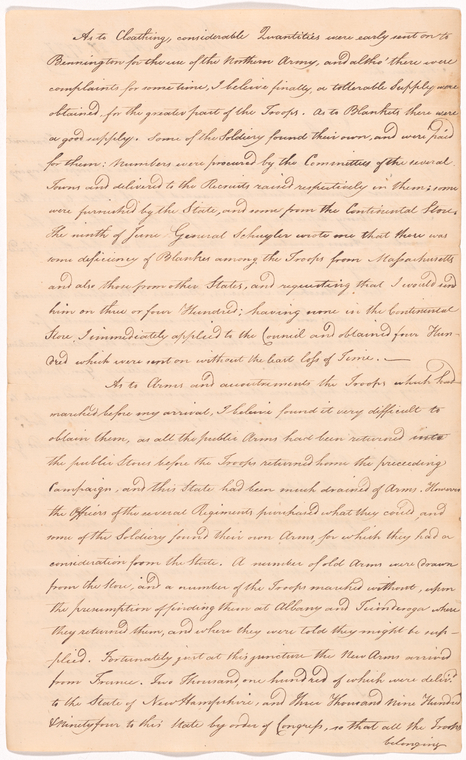 As to Cloathing, considerable Quantities were early sent on to
Bennington for the use of the Northern Army, and altho' there were
complaints for some time, I beleive finally, a tollerable Supply were
obtained, for the greater part of the Troops. As to Blankets there were
a good supply. Some of the Soldiery found their own, and were paid
for them; Numbers were procured by the Committees of the several
Towns and delivered to the Recruits raised respectively in them; some
were furnished by the State, and some from the Continental Store.
The ninth of June General Schuyler wrote me that there was
some deficiency of Blankets among the Troops from Massachusetts
and also those from other States, and requesting that I would send
him on three or four Hundred; having none in the Continental
Store, I immediately applied to the Council and obtained four Hun-
dred which were sent on without the least Loss of Time. —
As to Arms and accoutrements the Troops which had
marched before my arrival, I beleive found it very difficult to
obtain them, as all the public Arms had been returned into
the public Stores before the Troops returned home the preceeding
Campaign, and this State had been much drained of Arms. However
the Officers of the several Regiments purchased what they could, and
some of the Soldiery found their own Arms for which they had a
consideration from the State. A number of old Arms were drawn
from the Store, and a number of the Troops marched without, upon
the presumption of finding them at Albany and Ticonderoga where
they returned them, and where they were told they might be sup-
plied. Fortunately just at this juncture the New Arms arrived
from France. Two Thousand, one hundred of which were deliv.d
to the State of New Hampshire, and Three Thousand Nine Hundred
& Ninety four to this State by order of Congress, so that all the Troops
belonging